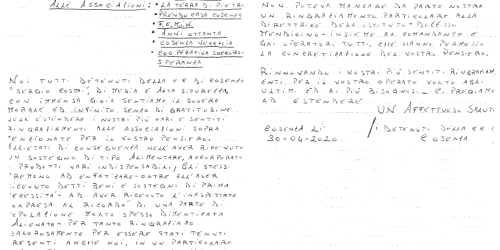 ALLE ASSOCIAZIONI:
• LA TERRA DI PIETRE
• PRENDO CASA COSENZA
• F.E.M.O.N
• ANNI OTTANTA
• COSENZA VECCHIA
• COOPERATIVA SOCCORSO
SPERANZA
NOI TUTTI DETENUTI DELLA C.C. DI COSENZA
"SERGIO COSMAI", DI MEDIA E ALTA SICUREZZA,
CON IMMENSA GIOIA SENTIAMO IL DOVERE
MORALE ED INFINITO SENSO DI GRATITUDINE
NELL'ESTENDERE I NOSTRI PIÙ VARI E SENTITI
RINGRAZIAMENTI ALLE ASSOCIAZIONI SOPRA
MENZIONATE PER IL VOSTRO PENSIERO.
ALLIETATI DI CONSEGUENZA NELL'AVER RICEVUTO
UN SOSTEGNO DI TIPO ALIMENTARE, ACCORPORATO
I PRODOTTI VARI INDISPENSABILI, GLI STESSI
TENGONO AD ENFATIZZARE - OLTRE ALL'AVER
RICEVUTO DETTI BENI E SOSTEGNI DI PRIMA
NECESSITÀ - AD AVER RICEVUTO L'INASPETTATO
SORPRESA AL RICORDO" DI UNA PARTE DI
POPOLAZIONE MOLTO SPESSO DIMENTICATA
ALIENATA - PERTANTO RINGRAZIAMO
CALOROSAMENTE PER ESSERE STATI TENUTI
PRESENTI ANCHE NOI, IN UN PARTICOLARE
NON POTEVA MANCARE DA PARTE NOSTRA
UN RINGRAZIAMENTO PARTICOLARE ALLA
DIRETTRICE DELL'ISTITUTO - DOTT.SSO
MENDICINO - INSIEME AL COMANDANTE E
GLI OPERATORI TUTTI, CHE HANNO PERMESSO
LA CONCRETIZZAZIONE DEL VOSTRO PENSIERO.
RINNOVANDO I NOSTRI PIÙ SENTITI RINGRAZIAM
ENTI PER IL VOSTRO OPERATO VOLTO AGLI
ULTIMI ED AI PIÙ BISOGNOSI - E PREGIAMO
AD ESTENDERE
UN AFFETTUOSO SALUTO
COSENZA LÌ
30-04-2020
I DETENUTI DELLA C.C.
COSENZA